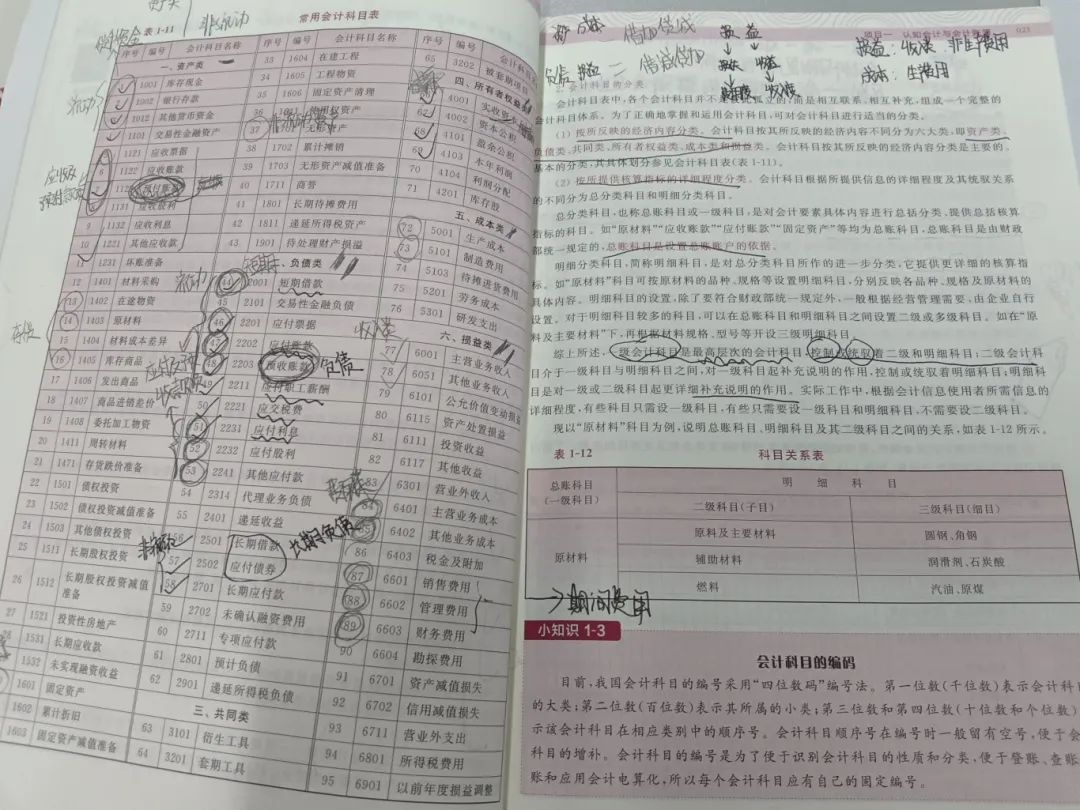 常用会计科目表
表 1-11
序号 编号 会计科目名称
一、资产类
1001 库存现金
1002 银行存款
1012 其他货币资金
1101 交易性金融资产
1121 应收票据
6 1122 应收账款
预付账款
1131 应收股利
9 1132 应收利息
10 1221 其他应收款
11 1231 坏账准备
12 1401 材料采购
13 1402 在途物资
14 1403 原材料
15 1404 材料成本差异
16 1405 库存商品
17 1406 发出商品
18 1407 商品进销差价
19 1408 委托加工物资
20 1411 周转材料
21 1471 存货跌价准备
22 1501 债权投资
23 1502 债权投资减值准备
24 1503 其他债权投资
25 1511 长期股权投资
26 1512 长期股权投资减值准备
27 1521 投资性房地产
28 1531 长期应收款
1532 未实现融资收益
1601 固定资产
1602 累计折旧
1603 固定资产减值准备
序号 编号 会计科目名称
33 1604 在建工程
34 1605 工程物资
35 1606 固定资产清理
36
37 无形资产
38 1702 累计摊销
39 1703 无形资产减值准备
40 1711 商誉
41 1801 长期待摊费用
42 1811 递延所得税资产
43 1901 待处理财产损溢
二、负债类
44 2001 短期借款
45 2101 交易性金融负债
46 2201 应付票据
47 2202 应付账款
48 2203 预收账款
负债
应付职工薪酬
50 2221 应交税费
51 2231 应付利息
52 2232 应付股利
53 2241 其他应付款
54 2314 代理业务负债
55 2401 递延收益
56 2501 长期借款
57 2502 应付债券
长期负债
58 2701 长期应付款
59 2702 未确认融资费用
60 2711 专项应付款
61 2801 预计负债
62 2901 递延所得税负债
三、共同类
63 3101 衍生工具
64 3201 套期工具
序号 编号
65 3202 被套期项目
四、所有者权益类
4001 实收资本
4002 资本公积
4101 盈余公积
69 4103 本年利润
70 4104 利润分配
71 4201 库存股
五、成本类
72 5001 生产成本
73 5101 制造费用
74 5103 待摊进货费用
75 5201 劳务成本
76 5301 研发支出
六、损益类
77 6001 主营业务收入
78 6051 其他业务收入
79 6101 公允价值变动损益
80 6115 资产处置损益
81 6111 投资收益
82 6117 其他收益
83 6301 营业外收入
84 6401 主营业务成本
85 6402 其他业务成本
86 6403 税金及附加
87 6601 销售费用
88 6602 管理费用
89 6603 财务费用
90 6604 勘探费用
91 6701 资产减值损失
92 6702 信用减值损失
93 6711 营业外支出
94 6801 所得税费用
95 6901 以前年度损益调整
项目一 认知会计与会计 023
损益
2. 会计科目的分类
会计科目表中,各个会计科目并不是彼此孤立的,而是相互联系、相互补充,组成一个完整的
会计科目体系。为了正确地掌握和运用会计科目,可对会计科目进行适当的分类。
(1) 按所反映的经济内容分类。会计科目按其所反映的经济内容不同分为六大类,即资产类、
负债类、共同类、所有者权益类、成本类和损益类。会计科目按其所反映的经济内容分类是主要的、
基本的分类,其具体划分参见会计科目表(表 1-11)。
(2) 按所提供核算指标的详细程度分类。会计科目根据所提供信息的详细程度及其统驭关系
的不同分为总分类科目和明细分类科目。
总分类科目,也称总账科目或一级科目,是对会计要素具体内容进行总括分类、提供总括核算
指标的科目。如“原材料”“应收账款”“应付账款”“固定资产”等均为总账科目,总账科目是由财政
部统一规定的,总账科目是设置总账账户的依据。
明细分类科目,简称明细科目,是对总分类科目所作的进一步分类,它提供更详细的核算指
标。如“原材料”科目可按原材料的品种、规格等设置明细科目,分别反映各品种、规格及原材料的
具体内容。明细科目的设置,除了要符合财政部统一规定外,一般根据经营管理需要,由企业自行
设置。对于明细科目较多的科目,可以在总账科目和明细科目之间设置二级或多级科目。如在“原
料及主要材料”下,再根据材料规格、型号等开设三级明细科目。
综上所述,一级会计科目是最高层次的会计科目,控制或统驭着二级和明细科目;二级会计科
目介于一级科目与明细科目之间,对一级科目起补充说明的作用,控制或统驭着明细科目;明细科
目是对一级或二级科目起更详细补充说明的作用。实际工作中,根据会计信息使用者所需信息的
详细程度,有些科目只需设一级科目,有些只需要设一级科目和明细科目,不需要设二级科目。
现以“原材料”科目为例,说明总账科目、明细科目及其二级科目之间的关系,如表 1-12 所示。
表 1-12 科目关系表
总账科目(一级科目) 明 细 科 目
二级科目(子目) 三级科目(细目)
原材料 原料及主要材料 圆钢、角钢
辅助材料 润滑剂、石炭酸
燃料 汽油、原煤
→期间费用
小知识 1-3
会计科目的编码
目前,我国会计科目的编号采用“四位数码”编号法。第一位数(千位数)表示会计科目
的大类;第二位数(百位数)表示其所属的小类;第三位数和第四位数(十位数和个位数)
示该会计科目在相应类别中的顺序号。会计科目顺序号在编号时一般留有空号,便于会
科目的增补。会计科目的编号是为了便于识别会计科目的性质和分类,便于登账、查账
账和应用会计电算化,所以每个会计科目应有自己的固定编号。